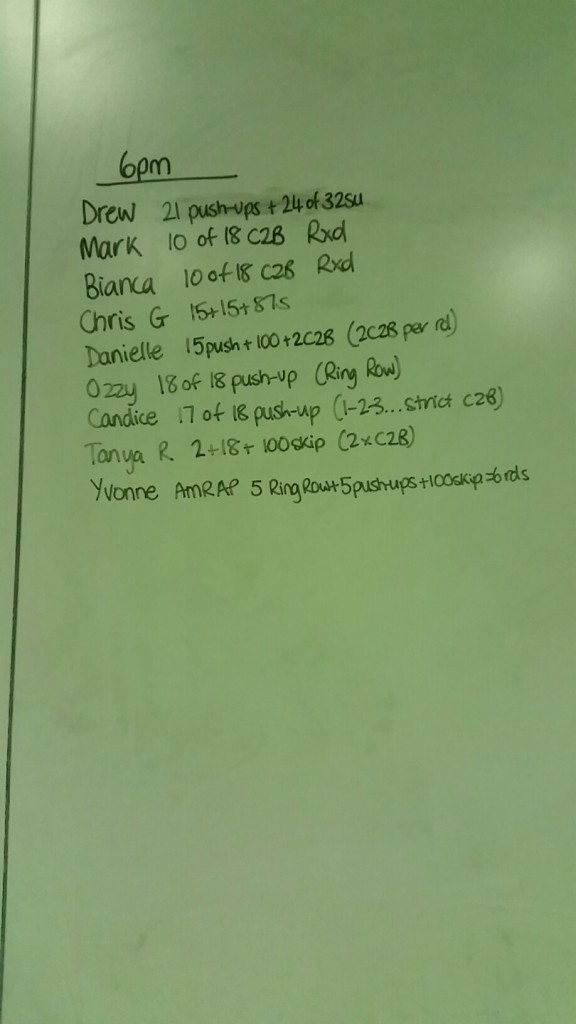 6pm
Drew 21 push-ups + 24 of 32su
Mark 10 of 18 C2B Rxd
Bianca 10 of 18 C2B Rxd
Chris G 15+15+87s
Danielle 15push+100+2C2B (2C2B per rd)
Ozzy 18 of 18 push-up (Ring Row)
Candice 17 of 18 push-up (1-2-3...strict C2B)
Tanya R 2+18+100skip (2xC2B)
Yvonne AMRAP 5 Ring Row+5pushups+100skip=6rds